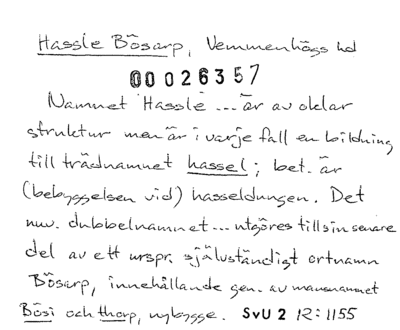 Hassle Bösarp, Vemmenhögs hd
00026357
Namnet Hassle ... är av oklar
struktur men är i varje fall en bildning
till trädnamnet hassel; bet. är
(bebyggelsen vid) hasseldungen. Det
nuv. dubbelnamnet ... utgöres till sin senare
del av ett urspr. självständigt ortnamn
Bösarp, innehållande gen. av mansnamnet
Bösi och thorp, nybygge. SvU 2 12:1155